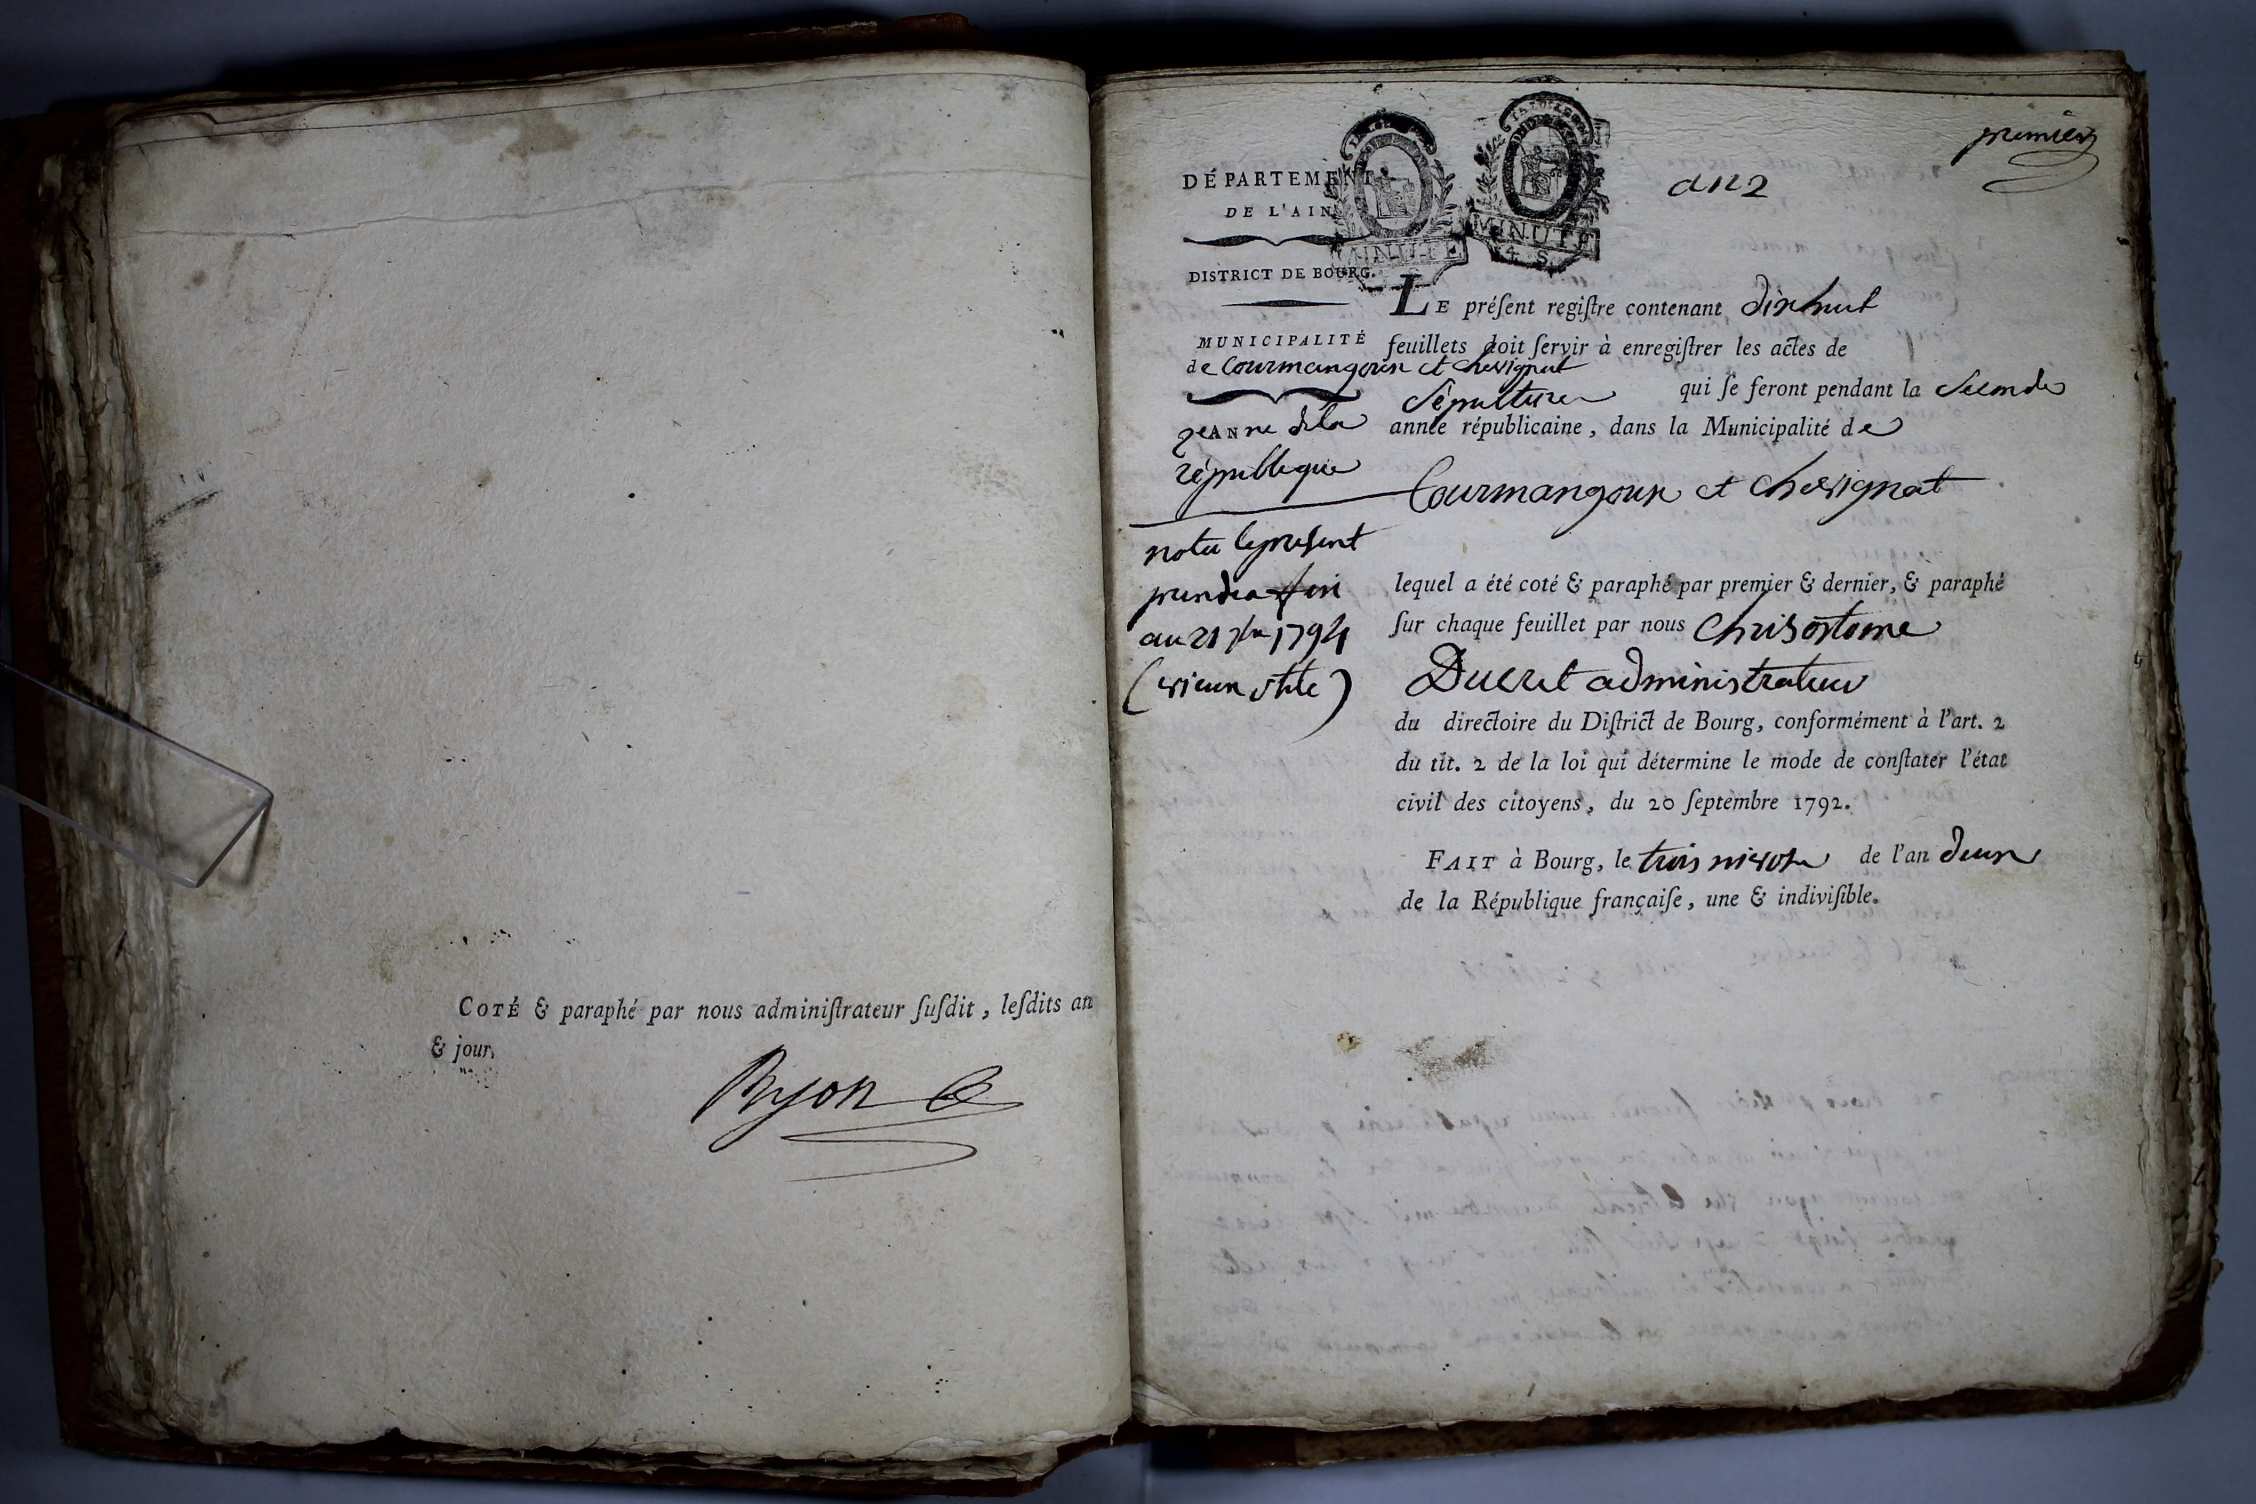 COTÉ & paraphé par nous adminiſtrateur ſuſdit, leſdits an
& jour.
Ryon
premier
an 2
DÉPARTEMENT
DE L'AIN
DISTRICT DE BOURG.
MUNICIPALITÉ
de Courmangoux et Chevignat
2e ANNe de la
république
nota le présent
prendra fin
au 21 7bre 1794
(vieux stile)
MINUTE
MINUTE
4 S
LE préſent regiſtre contenant dixhuit
feuillets doit ſervir à enregiſtrer les actes de
Sépulture qui ſe feront pendant la Seconde
année républicaine, dans la Municipalité de
Courmangoux et Chevignat
lequel a été coté & paraphé par premier & dernier, & paraphé
ſur chaque feuillet par nous Chrisostome
Ducret administrateur
du directoire du Diſtrict de Bourg, conformément à l'art. 2
du tit. 2 de la loi qui détermine le mode de conſtater l'état
civil des citoyens, du 20 ſeptembre 1792.
FAIT à Bourg, le trois nivose de l'an deux
de la République françaiſe, une & indiviſible.